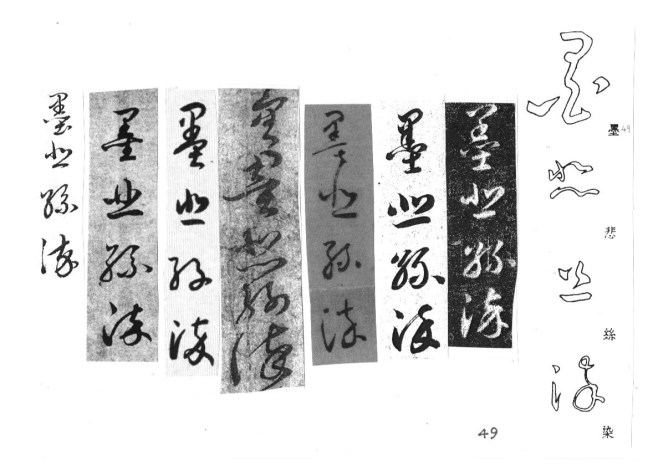 墨 49
悲
絲
染
墨悲絲染
墨悲絲染
墨悲絲染
墨悲絲染
墨悲絲染
墨悲絲染
墨悲絲染
49